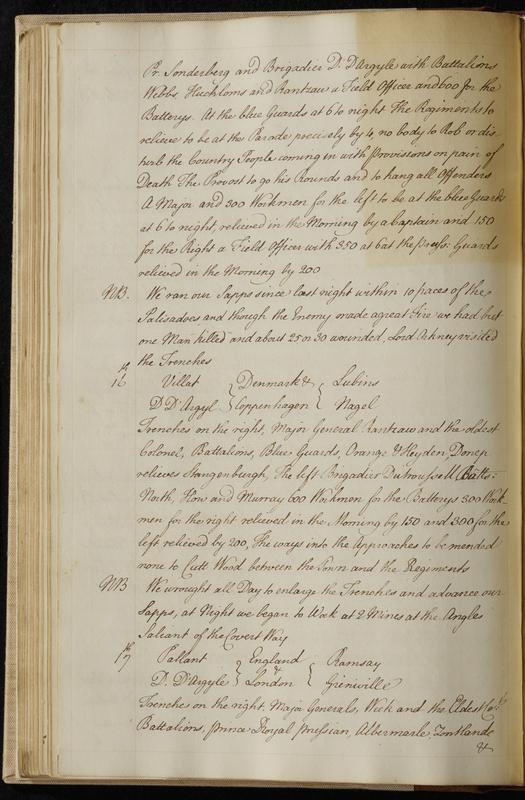 Pr. Sonderberg and Brigadier D. D'Argyle with Battalions
Webbs, Huchloms and Rantzaw a Field Officer and 600 for the
Batterys. At the blue Guards at 6 to night The Regiments to
relieve to be at the Parade precisely by 4, no body to Rob or dis-
turb the Country People coming in with Provisions on pain of
Death The Provost to go his Rounds and to hang all Offenders
A Major and 300 Workmen for the left to be at the blue Guards
at 6 to night, relieved in the Morning by a Captain and 150
for the Right a Field Officer with 350 at 6 at the Guards
relieved in the Morning by 200
NB. We ran our Sapps since last night within 10 paces of the
Palisadoes and though the Enemy made a great Fire we had but
one Man killed and about 25 or 30 wounded, Lord Orkney visited
the Trenches
16th Villat } Denmark & { Lubins
D D'Argyl } Coppenhagen { Nagel
Trenches on the right, Major General Rantzaw and the oldest
Colonel, Battalions, Blue Guards, Orange & Heyden, Donep
relieves Stangenburgh, The left Brigadier Battn:
North, How and Murray 600 Workmen for the Batterys 300 Work
men for the right relieved in the Morning by 150 and 300 for the
left relieved by 200, The ways into the Approaches to be mended
none to Cutt Wood between the Town and the Regiments
NB We wrought all Day to enlarge the Trenches and advance our
Sapps, at Night we began to Work at 2 Mines at the Angles
Saliant of the Covert Way
17th Pallant } England & { Ramsay
D. D'Argyle } London { Grenville
Trenches on the right, Major Generals, Week and the Eldest Col:
Battalions, Prince Royal Prussian, Albermarle, Zontlande
&